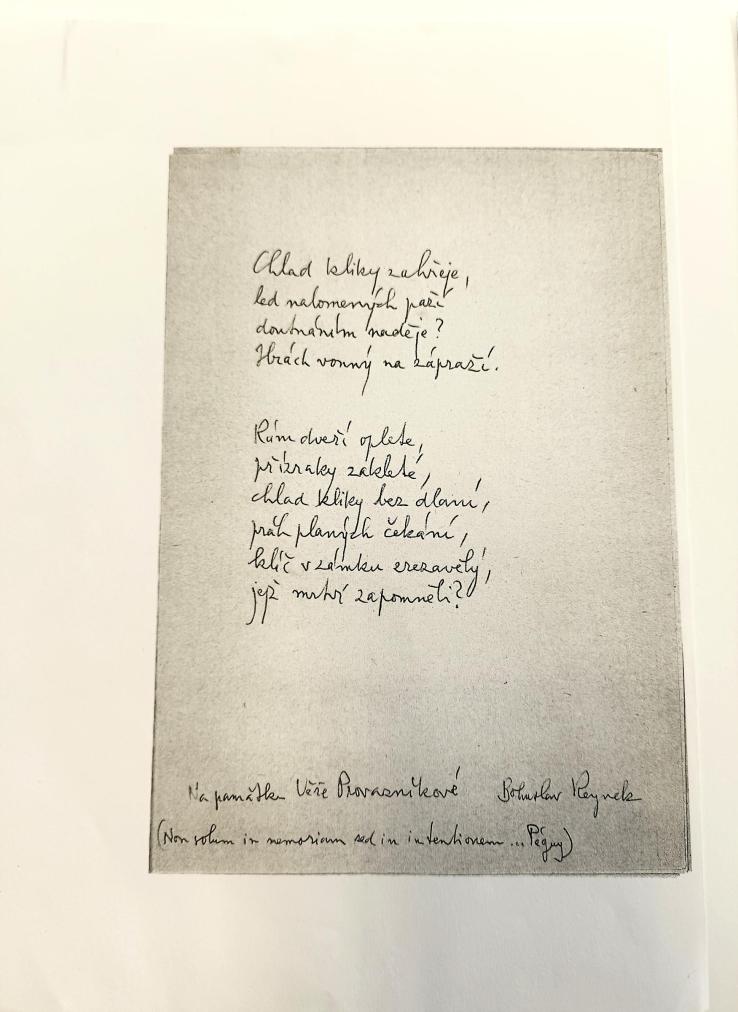 Chlad kliky zahřeje,
led nalomených paží
doutnáním naděje?
Hrách vonný na zápraží.
Rám dveří oplete,
přízraky zakleté,
chlad kliky bez dlaní,
práh planých čekání,
klíč v zámku zrezavělý,
jejž mrtví zapomněli?
Na památku Věře Provazníkové Bohuslav Reynek
(Non solum in memoriam sed in intentionem ... Péguy)